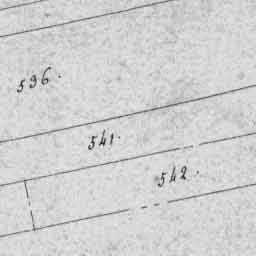 536.
541.
542.